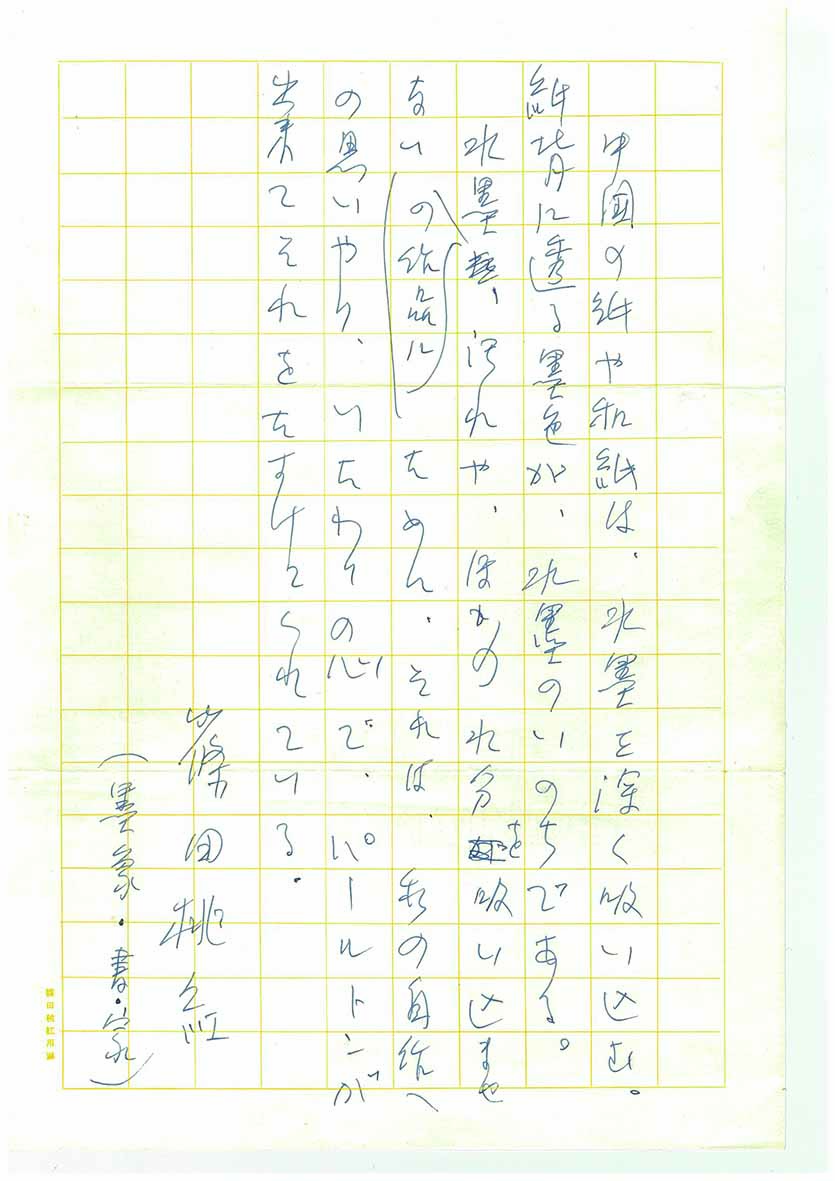 中国の紙や和紙は、水墨を深く吸い込む。
紙背に透る墨色が、水墨のいのちである。
水墨、汚れや、ほかの水分を吸い込ませ
の作品に
ないために、それは、私の自作へ
の思いやり、いたわりの心で、パールトンが
出来てそれをたすけてくれている。
篠田桃紅
（墨象・書・家）
篠田桃紅用箋